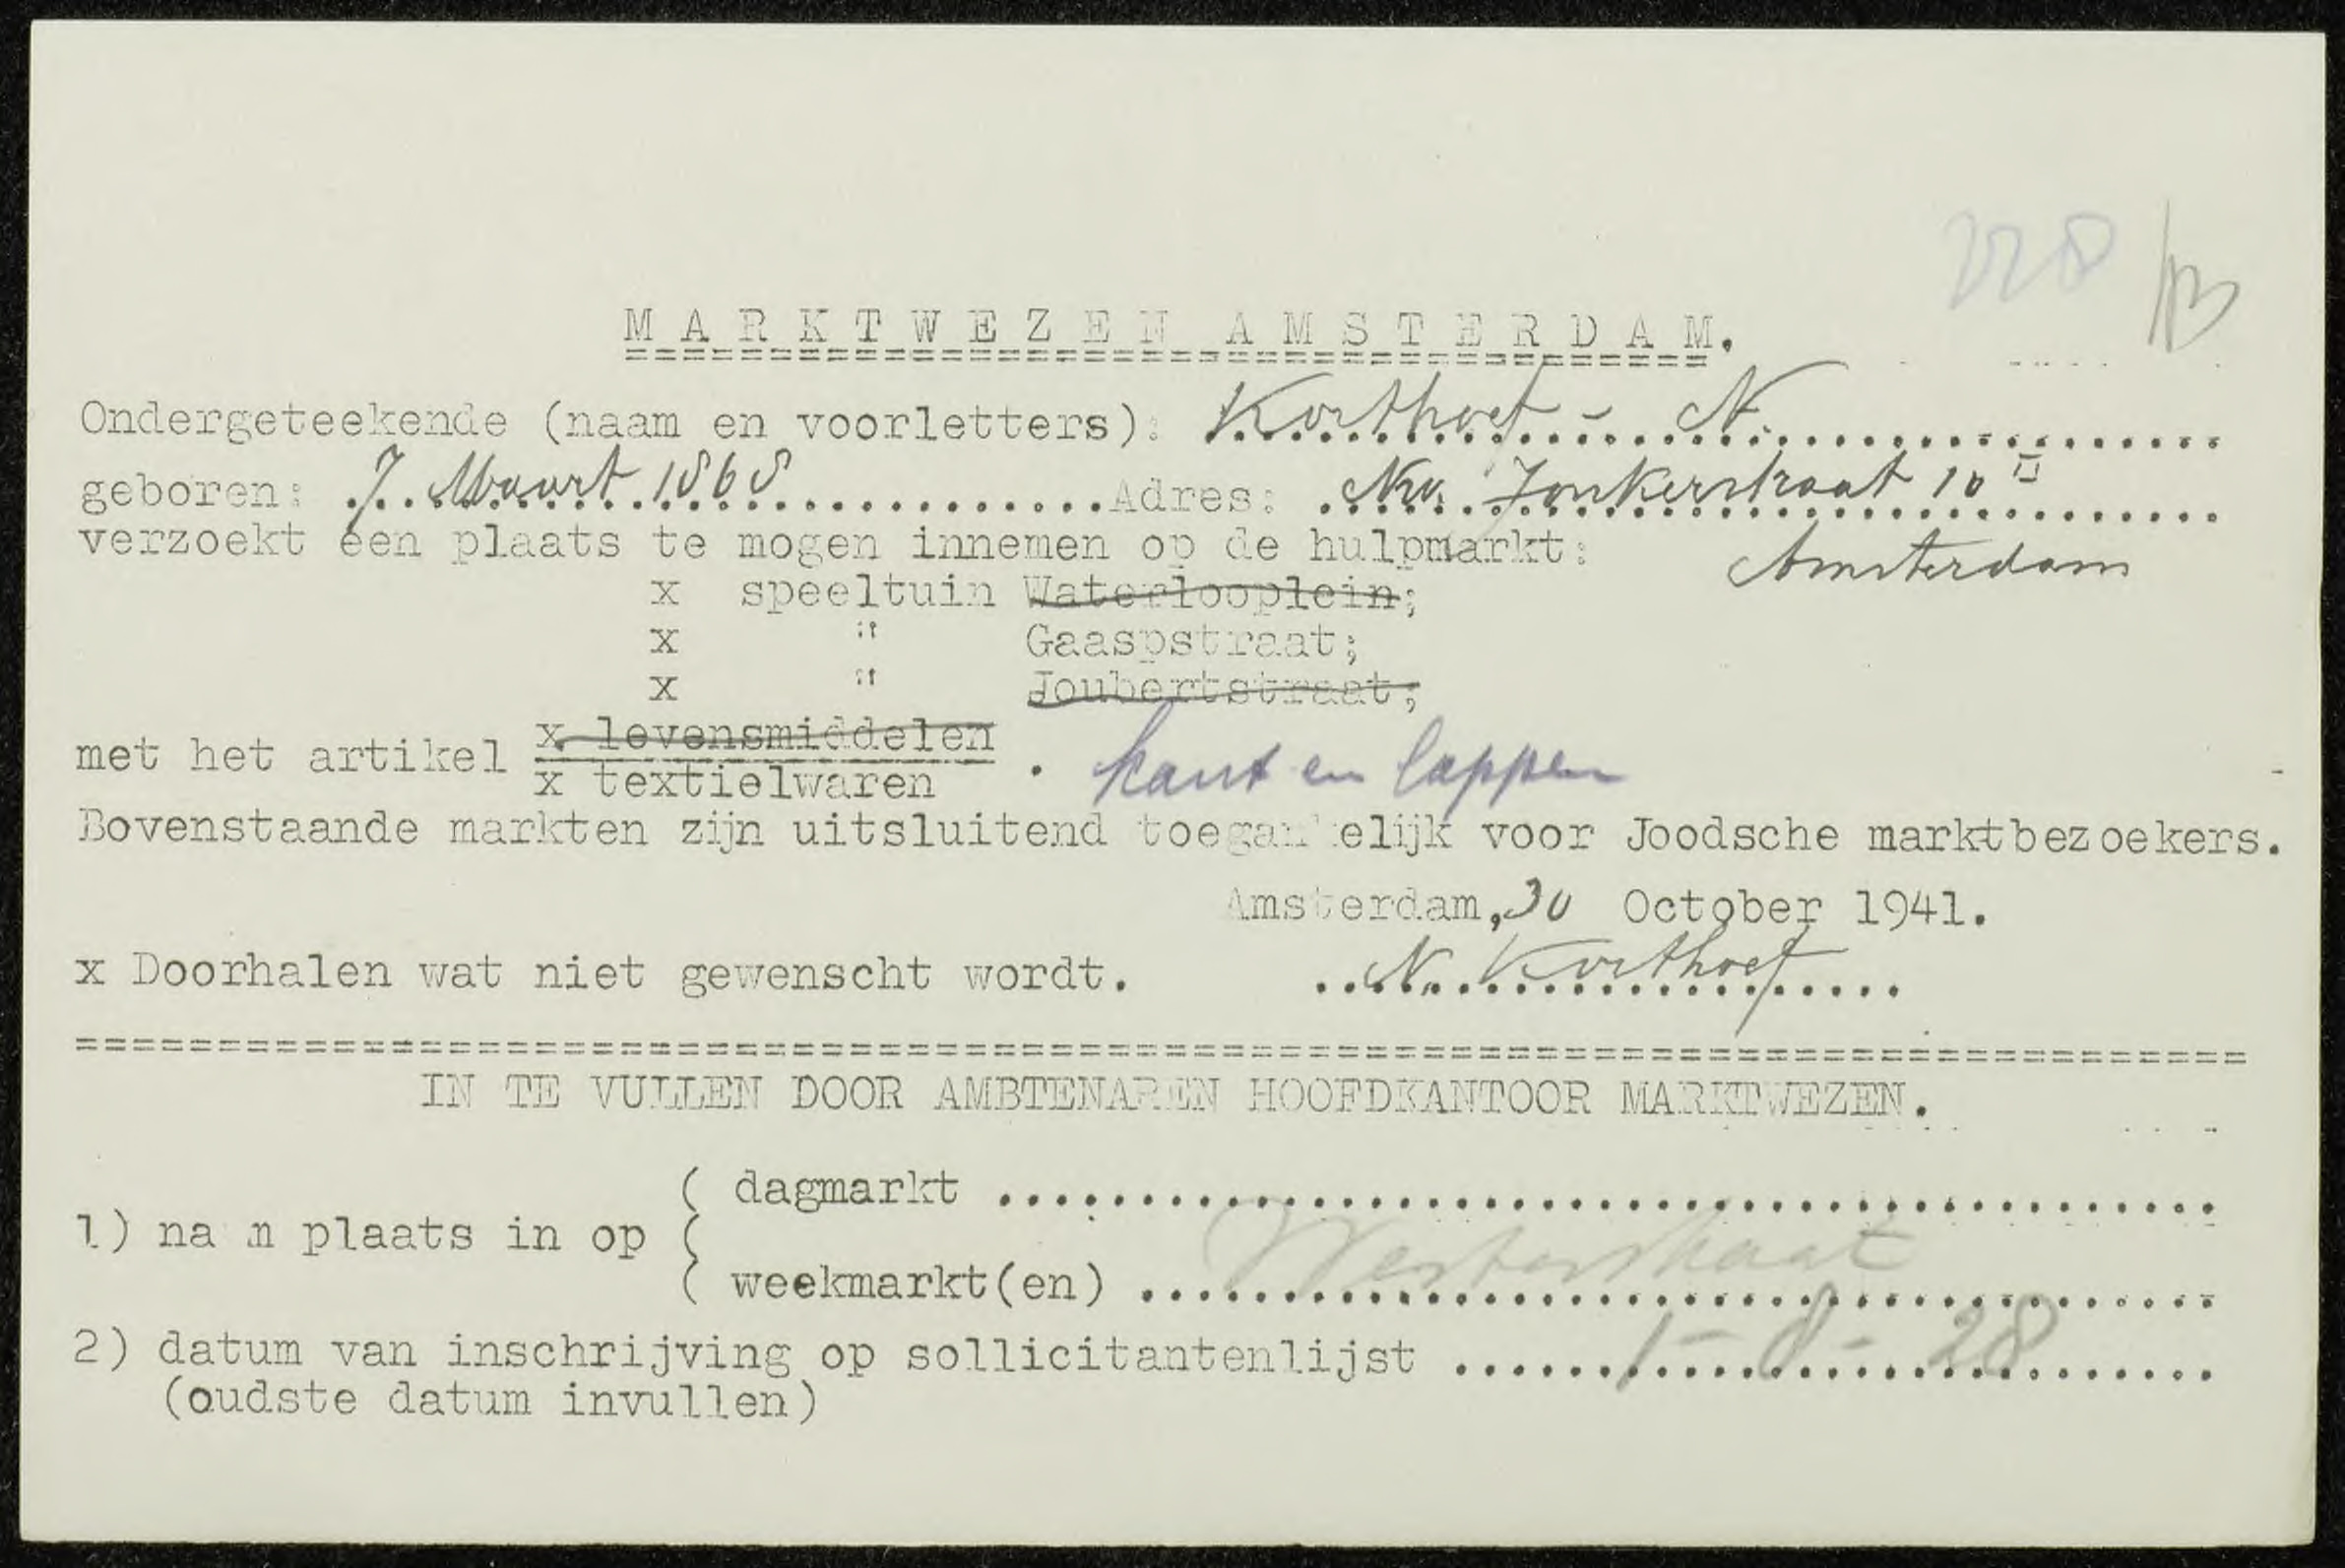 228
MARKTWEZEN AMSTERDAM.
Ondergeteekende (naam en voorletters): Korthoef - N.
geboren: 7. Maart 1868 Adres: Nw. Jonkerstraat 10 II
verzoekt een plaats te mogen innemen op de hulpmarkt: Amsterdam
x speeltuin Waterlooplein;
x " Gaaspstraat;
x " Joubertstraat;
met het artikel x levensmiddelen
x textielwaren . kant en lappen
Bovenstaande markten zijn uitsluitend toegankelijk voor Joodsche marktbezoekers.
Amsterdam, 30 October 1941.
x Doorhalen wat niet gewenscht wordt. N. Korthoef
IN TE VULLEN DOOR AMBTENAREN HOOFDKANTOOR MARKTWEZEN.
( dagmarkt ....................
1) na m plaats in op (
( weekmarkt(en) Westerstraat
2) datum van inschrijving op sollicitantenlijst 1-8-28
(oudste datum invullen)